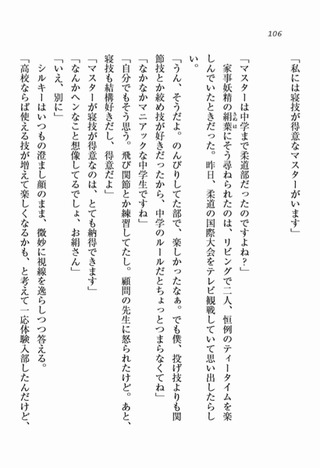 106
「私には寝技が得意なマスターがいます」
「マスターは中学まで柔道部だったのですよね？」
家事妖精の絹葉にそう尋ねられたのは、リビングで二人、恒例のティータイムを楽
しんでいたときだった。昨日、柔道の国際大会をテレビ観戦していて思い出したらし
い。
「うん、そうだよ。のんびりしてた部で、楽しかったなぁ。でも僕、投げ技よりも関
節技とか絞め技が好きだったから、中学のルールだとちょっとつまらなくてね」
「なかなかマニアックな中学生ですね」
「自分でもそう思う。飛び関節とか練習してたし。顧問の先生に怒られたけど。あと、
寝技も結構好きだし、得意だよ」
「マスターが寝技が得意なのは、とても納得できます」
「なんかヘンなこと想像してるでしょ、お絹さん」
「いえ、別に」
シルキーはいつもの澄まし顔のまま、微妙に視線を逸らしつつ答える。
「高校ならば使える技が増えて楽しくなるかも、と考えて一応体験入部したんだけど、